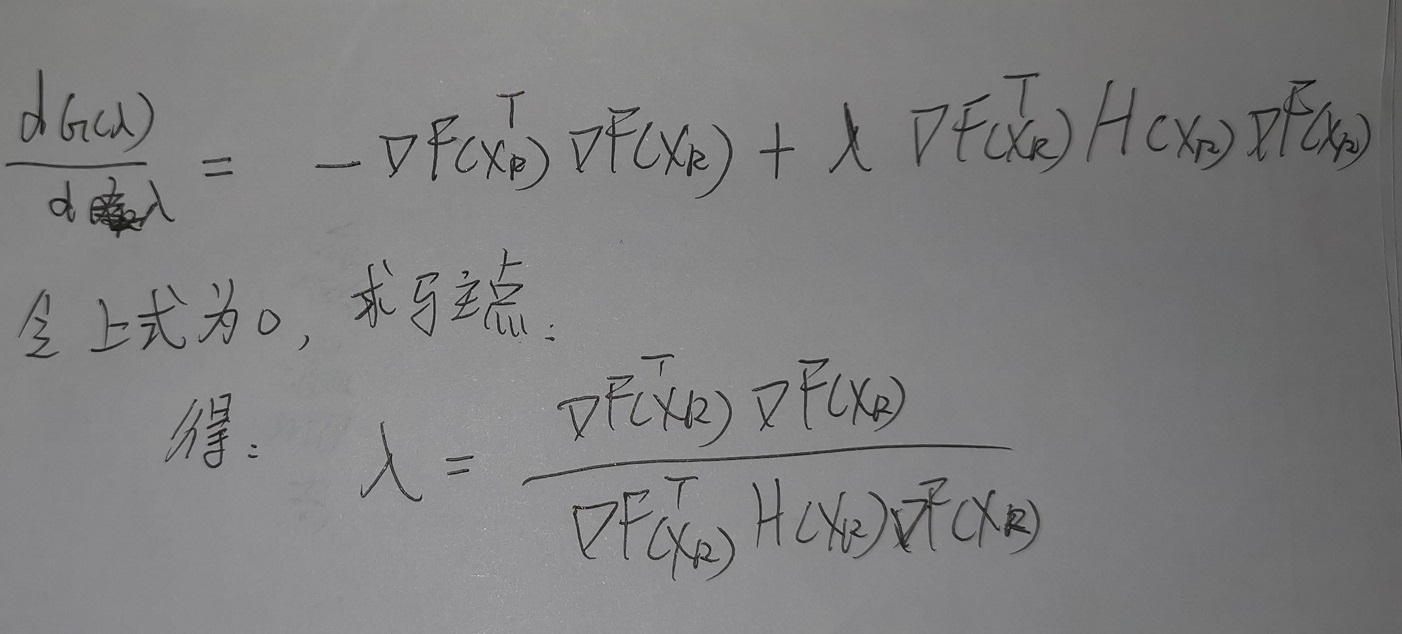 dG(λ)/dλ = -∇F(X_k)^T ∇F(X_k) + λ ∇F(X_k)^T H(X_k) ∇F(X_k)
令上式为0, 求驻点:
得: λ = ∇F(X_k)^T ∇F(X_k) / ∇F(X_k)^T H(X_k) ∇F(X_k)